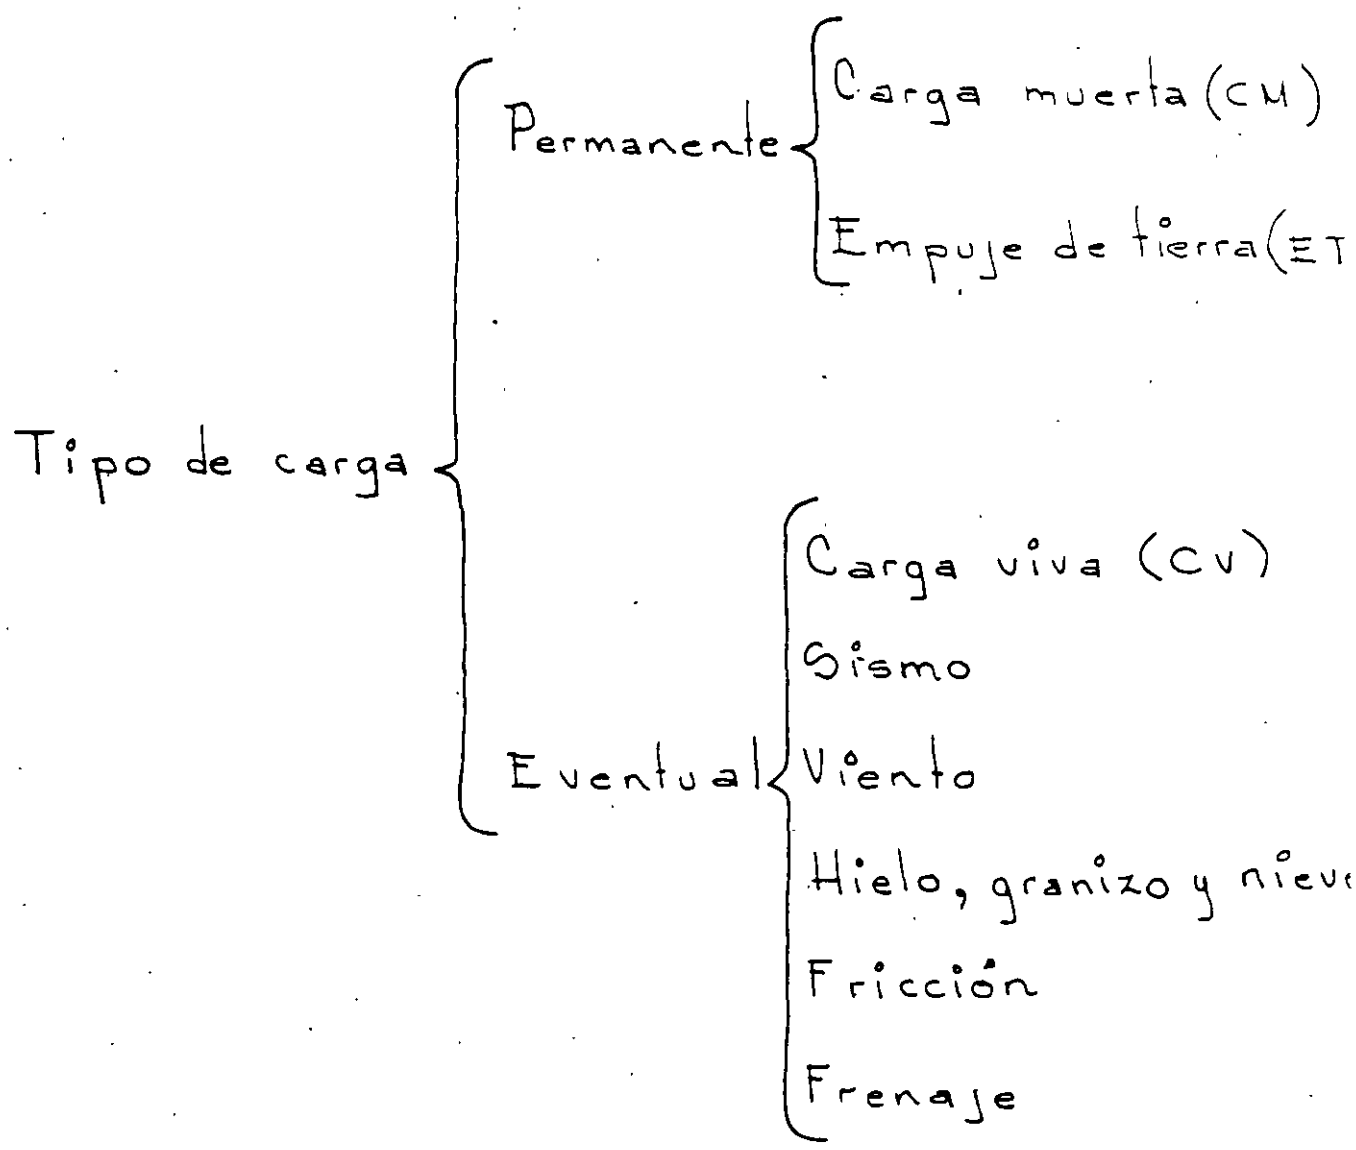 Tipo de carga
Permanente
Carga muerta (CM)
Empuje de tierra (ET
Eventual
Carga viva (CV)
Sismo
Viento
Hielo, granizo y nieve
Fricción
Frenaje